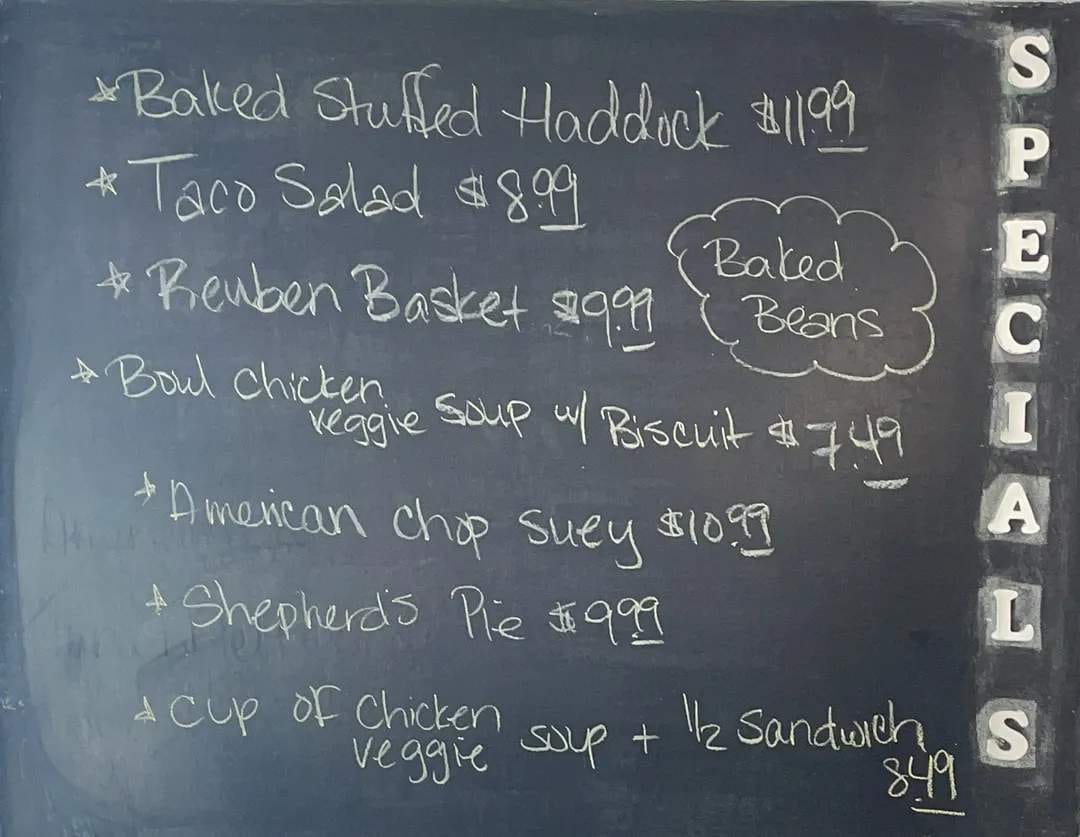 Baked Stuffed Haddock $11.99
Taco Salad $8.99
Reuben Basket $9.99
Baked
Beans
Bowl chicken
veggie soup w/ Biscuit $7.49
American chop suey $10.99
Shepherd's Pie $9.99
Cup of chicken
veggie soup + 1/2 Sandwich
8.49
SPECIALS